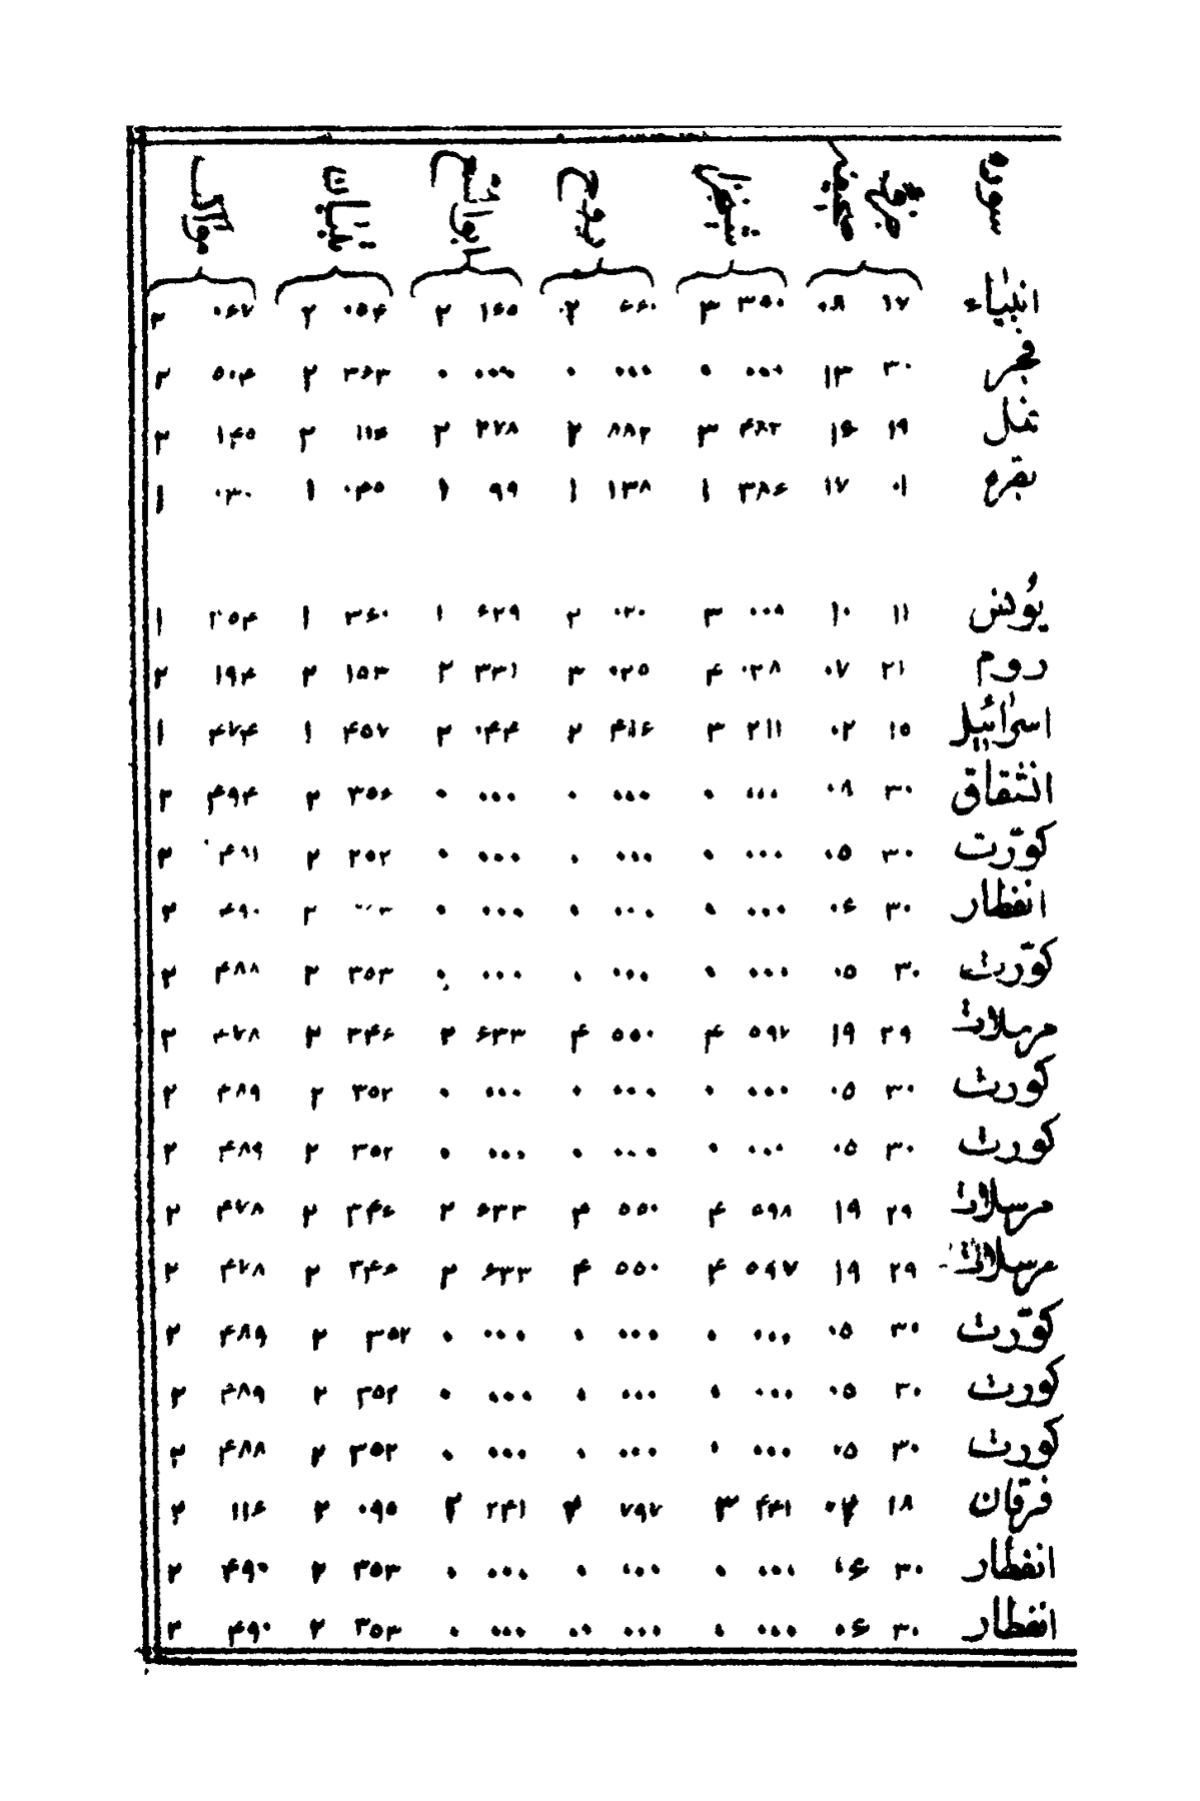 سوره جزو صحیفه شیخ روح ابوالفتوح تبیان مواکب
انبیاء ۱۷ ۰۸ ۳۵۰ ۳ ۶۶۰ ۲ ۱۶۵ ۲ ۰۵۴ ۲ ۰۶۷ ۲
فجر ۳۰ ۱۳ ۰۰۰ ۰ ۰۰۰ ۰ ۰۰۰ ۰ ۳۶۳ ۲ ۵۰۴ ۲
نمل ۱۹ ۱۶ ۴۸۳ ۳ ۸۸۲ ۲ ۲۷۸ ۲ ۱۱۴ ۲ ۱۴۵ ۲
بقره ۰۱ ۱۷ ۳۸۶ ۱ ۱۳۸ ۱ ۹۹ ۱ ۰۴۵ ۱ ۰۳۰ ۱
یونس ۱۱ ۱۰ ۰۰۸ ۳ ۰۲۰ ۲ ۶۲۹ ۱ ۳۶۰ ۱ ۳۵۴ ۱
روم ۲۱ ۰۷ ۰۲۸ ۴ ۰۲۵ ۳ ۳۳۱ ۲ ۱۵۳ ۲ ۱۹۴ ۲
اسرائیل ۱۵ ۰۲ ۲۱۱ ۳ ۴۱۶ ۲ ۰۴۴ ۲ ۴۵۷ ۱ ۴۷۴ ۱
انشقاق ۳۰ ۰۸ ۰۰۰ ۰ ۰۰۰ ۰ ۰۰۰ ۰ ۳۵۶ ۲ ۴۹۴ ۲
کوّرت ۳۰ ۰۵ ۰۰۰ ۰ ۰۰۰ ۰ ۰۰۰ ۰ ۲۵۲ ۲ ۴۹۱ ۲
انفطار ۳۰ ۰۶ ۰۰۰ ۰ ۰۰۰ ۰ ۰۰۰ ۰ ۲ ۴۹۰ ۲
کوّرت ۳۰ ۰۵ ۰۰۰ ۰ ۰۰۰ ۰ ۰۰۰ ۰ ۳۵۳ ۲ ۴۸۸ ۲
مرسلات ۲۹ ۱۹ ۵۹۷ ۴ ۵۵۰ ۴ ۶۳۳ ۲ ۳۴۶ ۲ ۴۷۸ ۲
کورت ۳۰ ۰۵ ۰۰۰ ۰ ۰۰۰ ۰ ۰۰۰ ۰ ۳۵۲ ۲ ۴۸۹ ۲
کورت ۳۰ ۰۵ ۰۰۰ ۰ ۰۰۰ ۰ ۰۰۰ ۰ ۳۵۲ ۲ ۴۸۹ ۲
مرسلات ۲۹ ۱۹ ۵۹۸ ۴ ۵۵۰ ۴ ۶۳۳ ۲ ۳۴۶ ۲ ۴۷۸ ۲
مرسلات ۲۹ ۱۹ ۵۹۷ ۴ ۵۵۰ ۴ ۶۳۳ ۲ ۳۴۶ ۲ ۴۷۸ ۲
کوّرت ۳۰ ۰۵ ۰۰۰ ۰ ۰۰۰ ۰ ۰۰۰ ۰ ۳۵۲ ۲ ۴۸۹ ۲
کورت ۳۰ ۰۵ ۰۰۰ ۰ ۰۰۰ ۰ ۰۰۰ ۰ ۳۵۲ ۲ ۴۸۹ ۲
کورت ۳۰ ۰۵ ۰۰۰ ۰ ۰۰۰ ۰ ۰۰۰ ۰ ۳۵۲ ۲ ۴۸۸ ۲
فرقان ۱۸ ۰۲ ۴۴۱ ۳ ۷۹۷ ۲ ۲۴۱ ۲ ۰۹۵ ۲ ۱۱۶ ۲
انفطار ۳۰ ۰۶ ۰۰۰ ۰ ۰۰۰ ۰ ۰۰۰ ۰ ۳۵۳ ۲ ۴۹۰ ۲
انفطار ۳۰ ۰۶ ۰۰۰ ۰ ۰۰۰ ۰۰ ۰۰۰ ۰ ۳۵۳ ۲ ۴۹۰ ۲